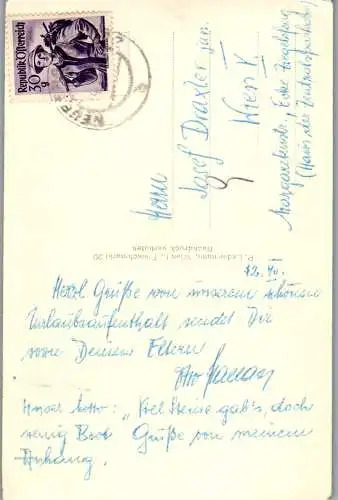 Republik Österreich
30 g
Herrn
Josef Draxler jun.
Wien V.
Margaretenstr., Ecke Ziegelofeng.
(Haus der Zentralsparkasse)
P. Ledermann, Wien I., Fleischmarkt 20
Nachdruck verboten
12. VII.
Herzl. Grüße von unserem schönen
Urlaubsaufenthalt sendet Dir
von Deinen Eltern
Unser Motto: "Viel Steine gab's, doch
wenig Brot. Grüße von meinem
Anhang.